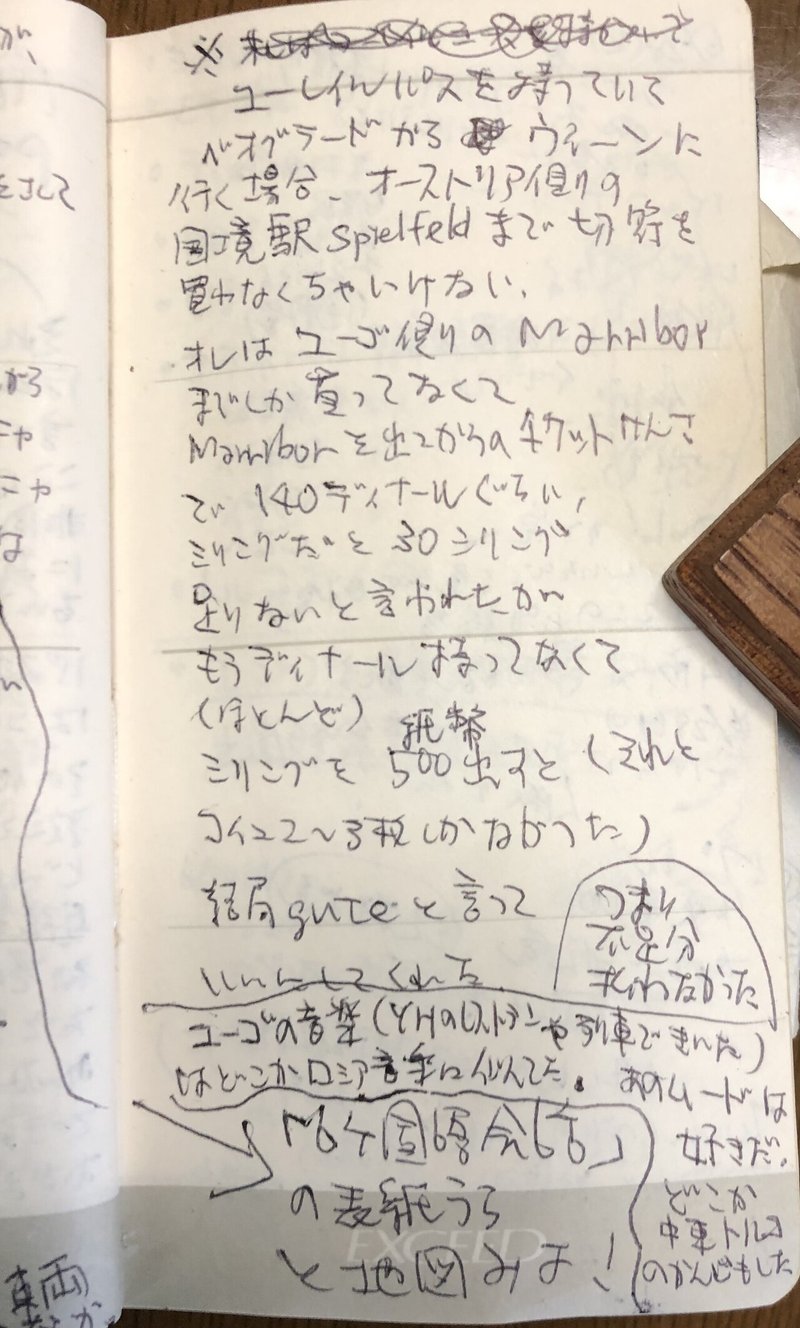 ※
ユーレイルパスを持っていて
ベオグラードから ウィーンに
行く場合、オーストリア側の
国境駅 Spielfeld まで切符を
買わなくちゃいけない、
オレは ユーゴ側の Marribor
までしか買ってなくて
Marriborを出てからのチケットけんさ
で 140ディナールぐらい、
シリングだと 30シリング
足りないと言われたが
もうディナール持ってなくて
(ほとんど)
紙幣
シリングを 500出すと (それと
コイン2〜3枚しかなかった)
結局 gute と言って
いいにしてくれた
つまり
不足分
払わなかった
ユーゴの音楽(YHのレストランや列車できいた)
はどこかロシア音楽に似てた。あのムードは
好きだ、
どこか
中東トルコ
のかんじもした
「6ヶ国語会話」
の表紙うら
と地図みよ!
EXCEED
が、
車両